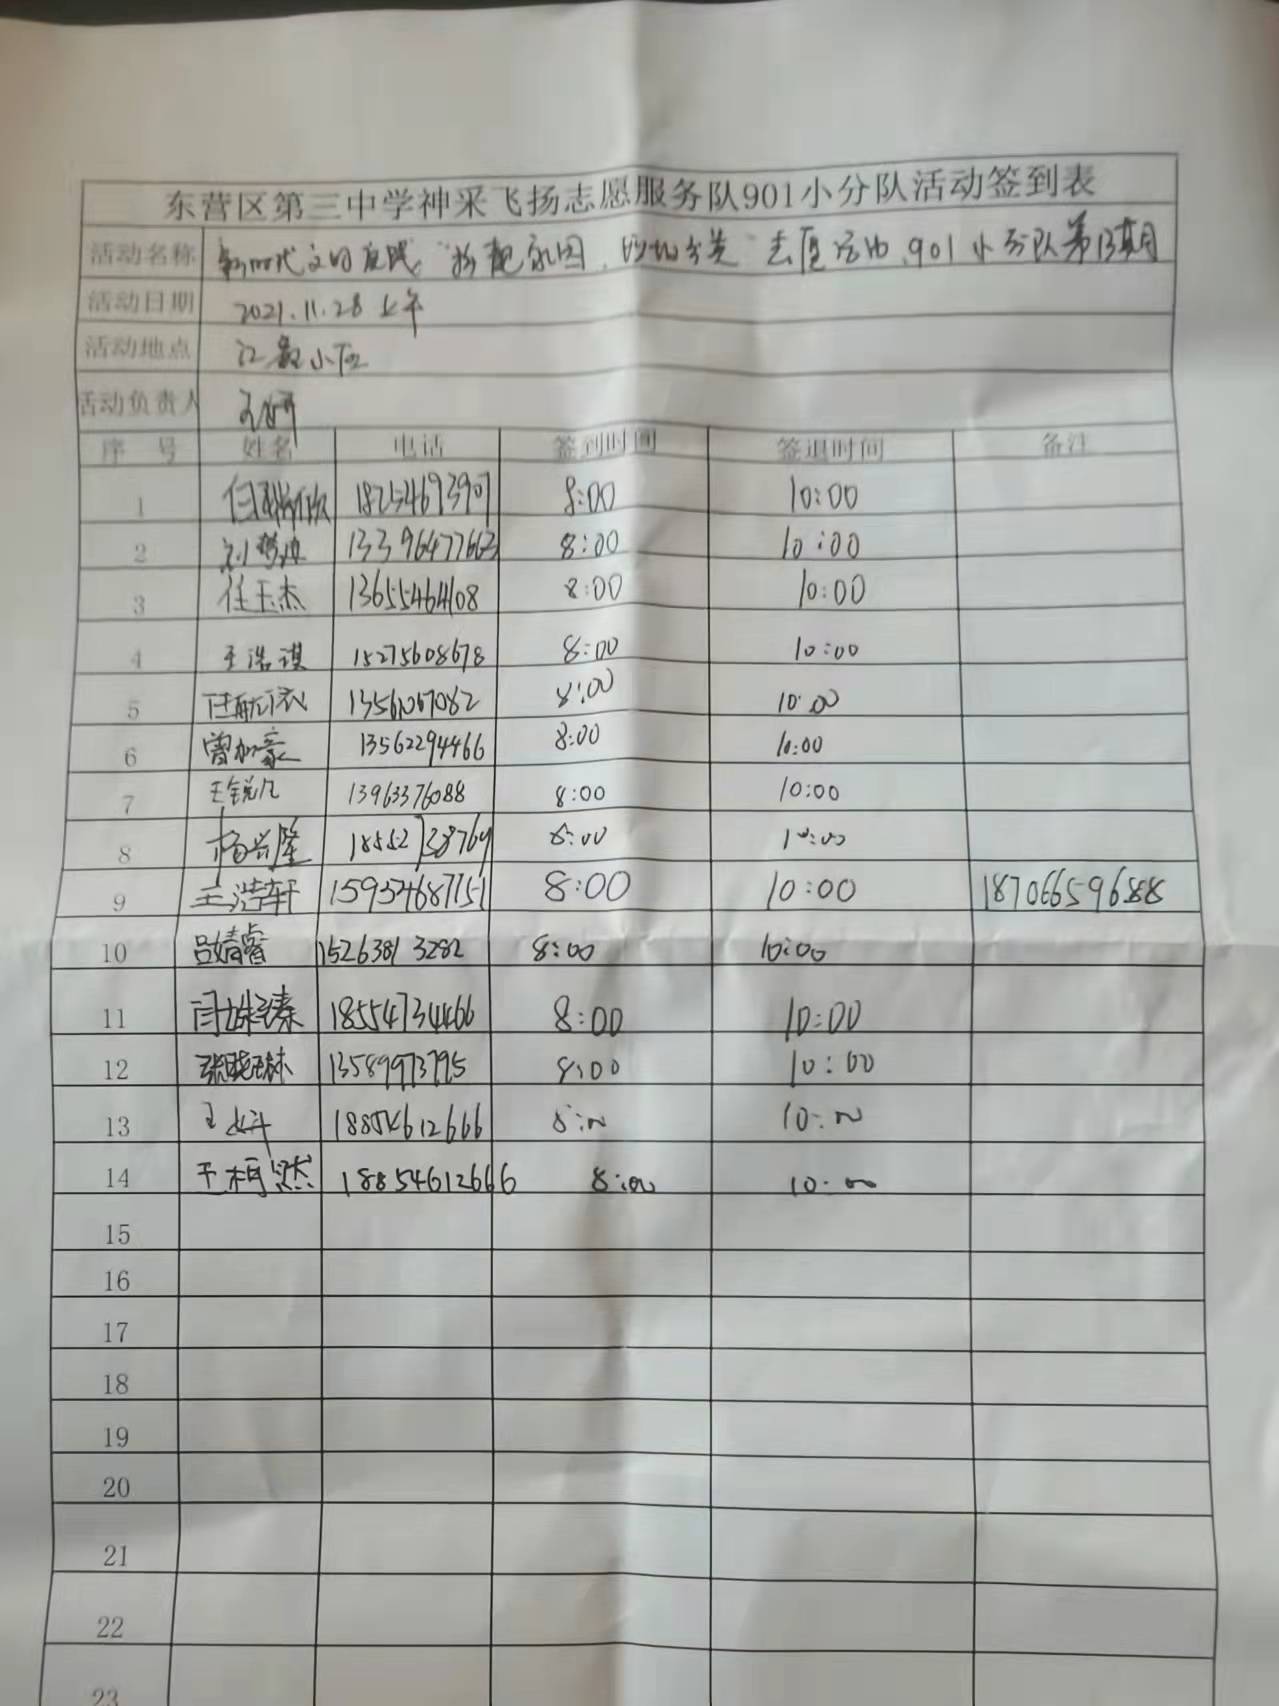 东营区第三中学神采飞扬志愿服务队901小分队活动签到表
活动名称 新时代文明实践 志愿活动 901小分队第13期
活动日期 2021.11.28 上午
活动地点 小区
活动负责人 王妍
序号 姓名 电话 签到时间 签退时间 备注
1 18254693907 8:00 10:00
2 刘 13396477663 8:00 10:00
3 任玉杰 13655464108 8:00 10:00
4 王浩祺 15275608678 8:00 10:00
5 8:00 10:00
6 曾加豪 13562294466 8:00 10:00
7 王锐凡 13963376088 8:00 10:00
8 杨兴隆 8:00 10:00
9 王浩轩 15954687151 8:00 10:00 18706659688
10 吕婧睿 15263813282 8:00 10:00
11 闫姝蓁 18554734466 8:00 10:00
12 张晓琳 13589973795 8:00 10:00
13 王妍 18854612666 8:00 10:00
14 王柯然 18854612666 8:00 10:00
15
16
17
18
19
20
21
22
23